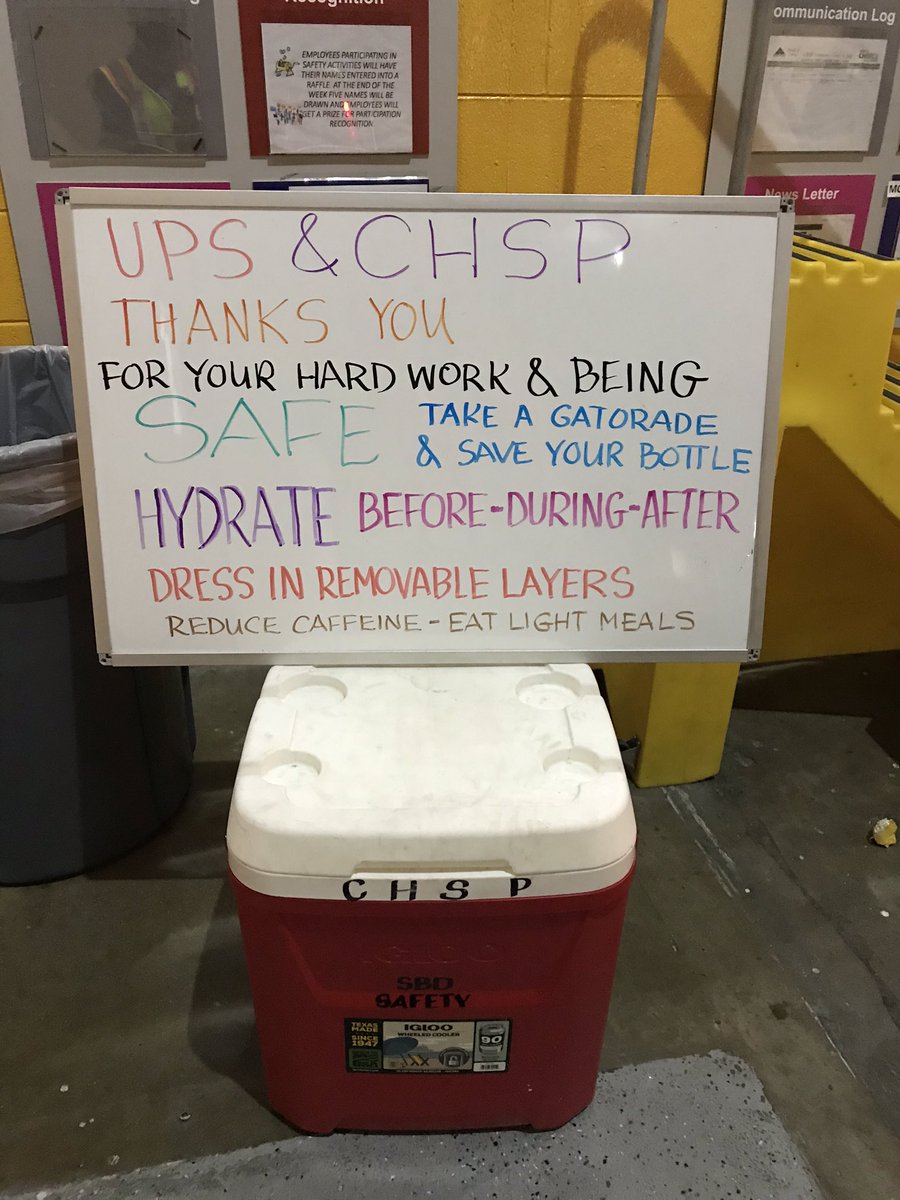 Recognition
ommunication Log
EMPLOYEES PARTICIPATING IN
SAFETY ACTIVITIES WILL HAVE
THEIR NAMES ENTERED INTO A
RAFFLE. AT THE END OF THE
WEEK FIVE NAMES WILL BE
DRAWN AND EMPLOYEES WILL
GET A PRIZE FOR PARTICIPATION
RECOGNITION
News Letter
UPS & CHSP
THANKS YOU
FOR YOUR HARD WORK & BEING
SAFE TAKE A GATORADE
& SAVE YOUR BOTTLE
HYDRATE BEFORE-DURING-AFTER
DRESS IN REMOVABLE LAYERS
REDUCE CAFFEINE - EAT LIGHT MEALS
CHSP
IGLOO
SBD
SAFETY
TEXAS
MADE
SINCE
1947
IGLOO
WHEELED COOLER
90